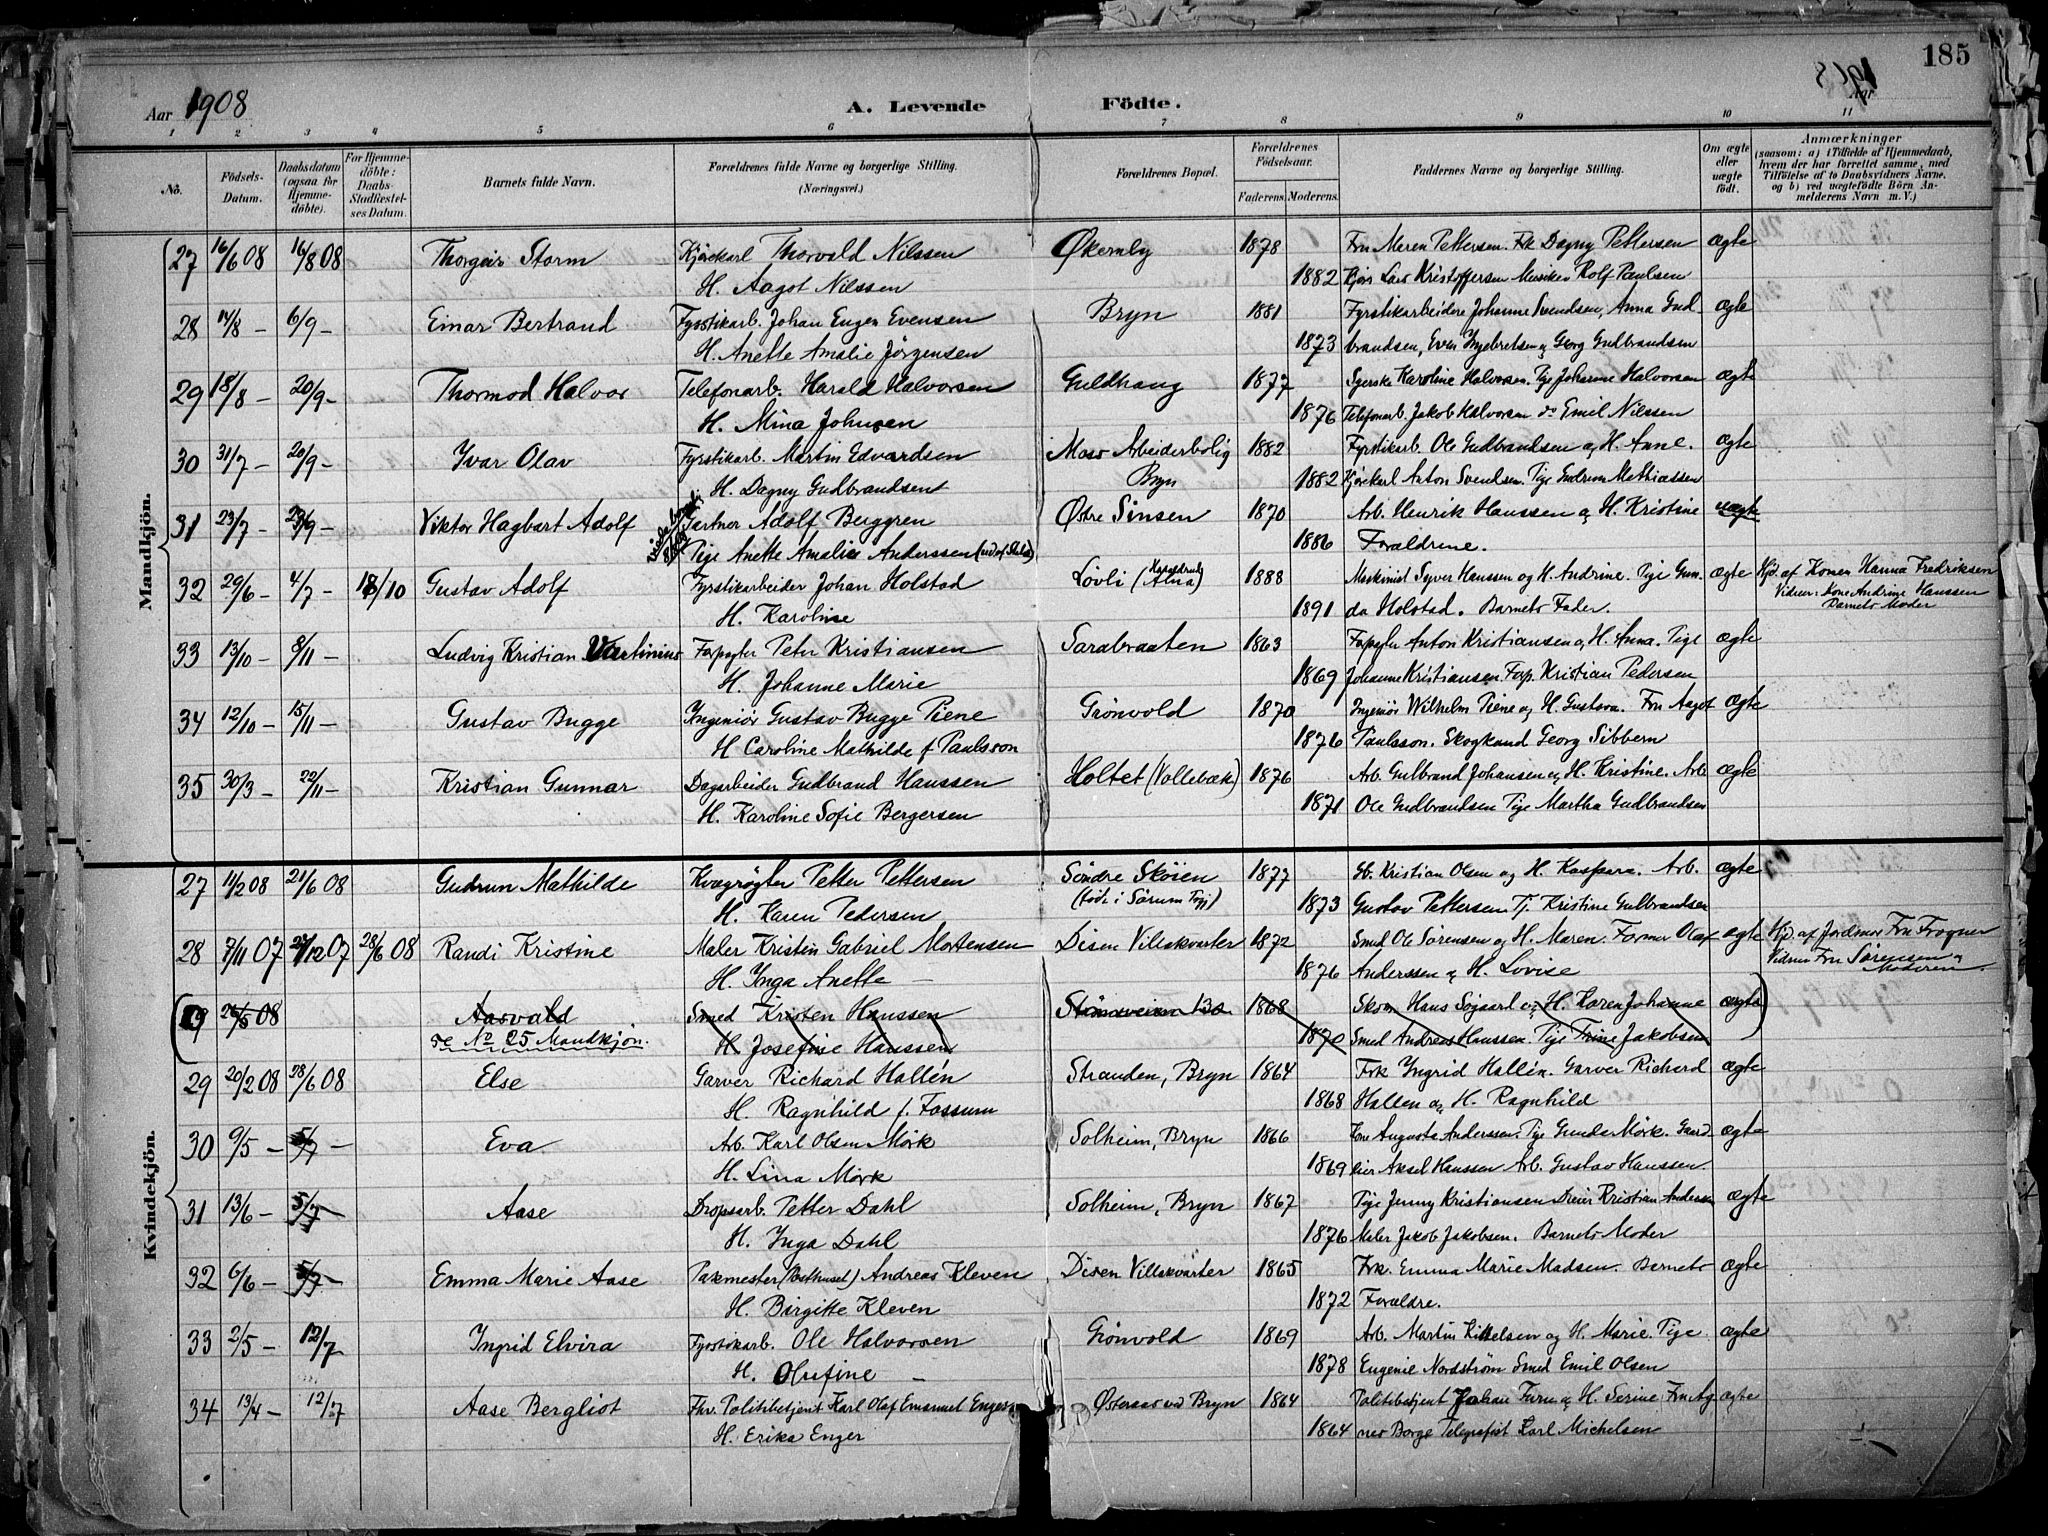 185
Aar 1908
A. Levende Födte.
1908 Aar
1 2 3 4 5 6 7 8 9 10 11
No.
Födsels-Datum.
Daabsdatum (ogsaa for Hjemme-döbte).
For Hjemme-döbte: Daabs-Stadfæstel-ses Datum.
Barnets fulde Navn.
Forældrenes fulde Navne og borgerlige Stilling. (Næringsvei.)
Forældrenes Bopæl.
Forældrenes Födselsaar.
Faderens. Moderens.
Faddernes Navne og borgerlige Stilling.
Om ægte eller uægte födt.
Anmærkninger
(saasom: a) i Tilfælde af Hjemmedaab, hvem der har forrettet samme, med Tilföielse af to Daabsvidners Navne, og b) ved uægtefödte Börn An-melderens Navn m. V.)
Mandkjön.
27 16/6 08 16/8 08 Thorgeir Storm Kjørekarl Thorvald Nilssen Økernby 1878 Fru Maren Pettersen. Frk Dagny Pettersen ægte
H. Aagot Nilssen 1882 Kjørs Lars Kristoffersen Musiker Rolf Paulsen
28 14/8 – 6/9 – Einar Bertrand Fyrstikarb. Johan Eugen Evensen Bryn 1881 Fyrstikarbeidere Johanne Svendsen, Anna Gud- ægte
H. Anette Amalie Jörgensen 1873 brandsen, Even Ingebretsen og Georg Gudbrandsen
29 18/8 – 20/9 – Thormod Halvor Telefonarb. Harald Halvorsen Guldhaug 1877 Syerske Karoline Halvorsen. Pige Johanne Halvorsen ægte
H. Mina Johnsen 1876 Telefonarb. Jakob Halvorsen do Emil Nilssen
30 31/7 – 20/9 – Yvar Olav Fyrstikarb. Martin Edvardsen Moss Arbeiderbolig 1882 Fyrstikarb. Ole Gudbrandsen og H. Anne. ægte
H. Dagny Gudbrandsen Bryn 1882 Kjørekarl Anton Svendsen. Pige Gudrun Mathiassen
31 23/7 – Viktor Hagbart Adolf Gartner Adolf Berggren Østre Sinsen 1870 Arb. Henrik Hanssen og H. Kristine uægte
Pige Anette Amalie Anderssen 1886 Forældrene.
32 29/6 – 4/7 – 18/10 Gustav Adolf Fyrstikarbeider Johan Holstad Løvli (Alna) 1888 Maskinist Syver Hanssen og H. Andrine. Pige Gun- ægte Hjd. af Konen Hanna Fredriksen
H. Karoline 1891 da Holstad. Barnets Fader. Vidner: Kone Andrine Hanssen
Barnets Moder
33 13/10 – 8/11 – Ludvig Kristian Martinius Forpagter Peter Kristiansen Sarabraaten 1863 Forpagter Anton Kristiansen og H. Anna. Pige ægte
H. Johanne Marie 1869 Johanne Kristiansen. Forp. Kristian Pedersen
34 12/10 – 15/11 – Gustav Bugge Ingeniør Gustav Bugge Piene Grønvold 1870 Ingeniør Wilhelm Piene og H. Gustava. Fru Aagot ægte
H Caroline Mathilde f. Paulsson 1876 Paulsson. Skogkand Georg Sibbern
35 30/3 – 22/11 – Kristian Gunnar Dagarbeider Gudbrand Hanssen Holtet (Vollebæk) 1876 Arb. Gulbrand Johansen og H. Kristine. Arb ægte
H. Karoline Sofie Bergersen 1871 Ole Gudbrandsen Pige Martha Gudbrandsen
Kvindekjön.
27 1/2 08 21/6 08 Gudrun Mathilde Kvægrøgter Petter Pettersen Söndre Skøien 1877 Gb. Kristian Olsen og H. Kaspara. Arb. ægte
H. Karen Pedersen (född i Sørum) 1873 Gustav Pettersen Tj. Kristine Gulbrandsen
28 7/11 07 27/12 07 28/6 08 Randi Kristine Maler Kristin Gabriel Mortensen Disen Villakvarter 1872 Smed Ole Sørensen og H. Maren. Former Olaf ægte Hjd. af Jordmor Fru Frogner
H. Inga Anette – 1876 Anderssen og H. Lovise Vidner Fru Sörensen og
Moderen
29 26/5 08 Aasvald Smed Kristen Hanssen 1868 Hans Søgaard og H. Karen Johanne ægte
se No 25 Mandkjön. H. Josefine Hanssen 1870 Smed Andreas Hanssen. Pige Trine Jakobsen
29 20/2 08 28/6 08 Else Garver Richard Hallén Stranden, Bryn 1864 Frk Ingrid Hallén. Garver Richard ægte
H. Ragnhild f. Fossum 1868 Hallen og H. Ragnhild
30 9/5 – 5/7 – Eva Arb. Karl Olsen Mörk Solheim, Bryn 1866 Kone Augusta Anderssen. Pige Gunda Mörk. Gaard- ægte
H. Lina Mörk 1869 eier Aksel Hanssen Arb. Gustav Hanssen
31 13/6 – 5/7 – Aase Dropsarb. Petter Dahl Solheim, Bryn 1867 Pige Jenny Kristiansen Dreier Kristian Andersen ægte
H. Inga Dahl 1876 Maler Jakob Jakobsen. Barnets Moder
32 6/6 – 5/7 – Emma Marie Aase Pakmester (Posthuset) Andreas Kleven Disen Villakvarter 1865 Frk. Emma Marie Madsen. Barnets ægte
H. Birgitte Kleven 1872 Forældre.
33 2/5 – 12/7 Ingrid Elvira Fyrstikarb. Ole Halvorsen Grönvold 1869 Arb. Martin Kittelsen og H. Marie. Pige ægte
H. Olufine – 1878 Eugenie Nordström Smed Emil Olsen
34 13/4 – 12/7 Aase Bergliot Fhv. Politibetjent Karl Olaf Emanuel Enger Østeraas ved Bryn 1864 Politibetjent Johan Furu og H. Serine. Fru Ag- ægte
H. Erika Enger 1864 nes Borge Telegrafist Karl Michelsen